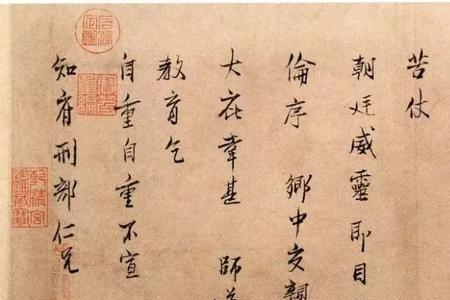 苦仗
朝廷威靈即目
倫序 鄉中交親
大庇幸甚 師
教育乞
自重自重不宣
知府刑部仁兄